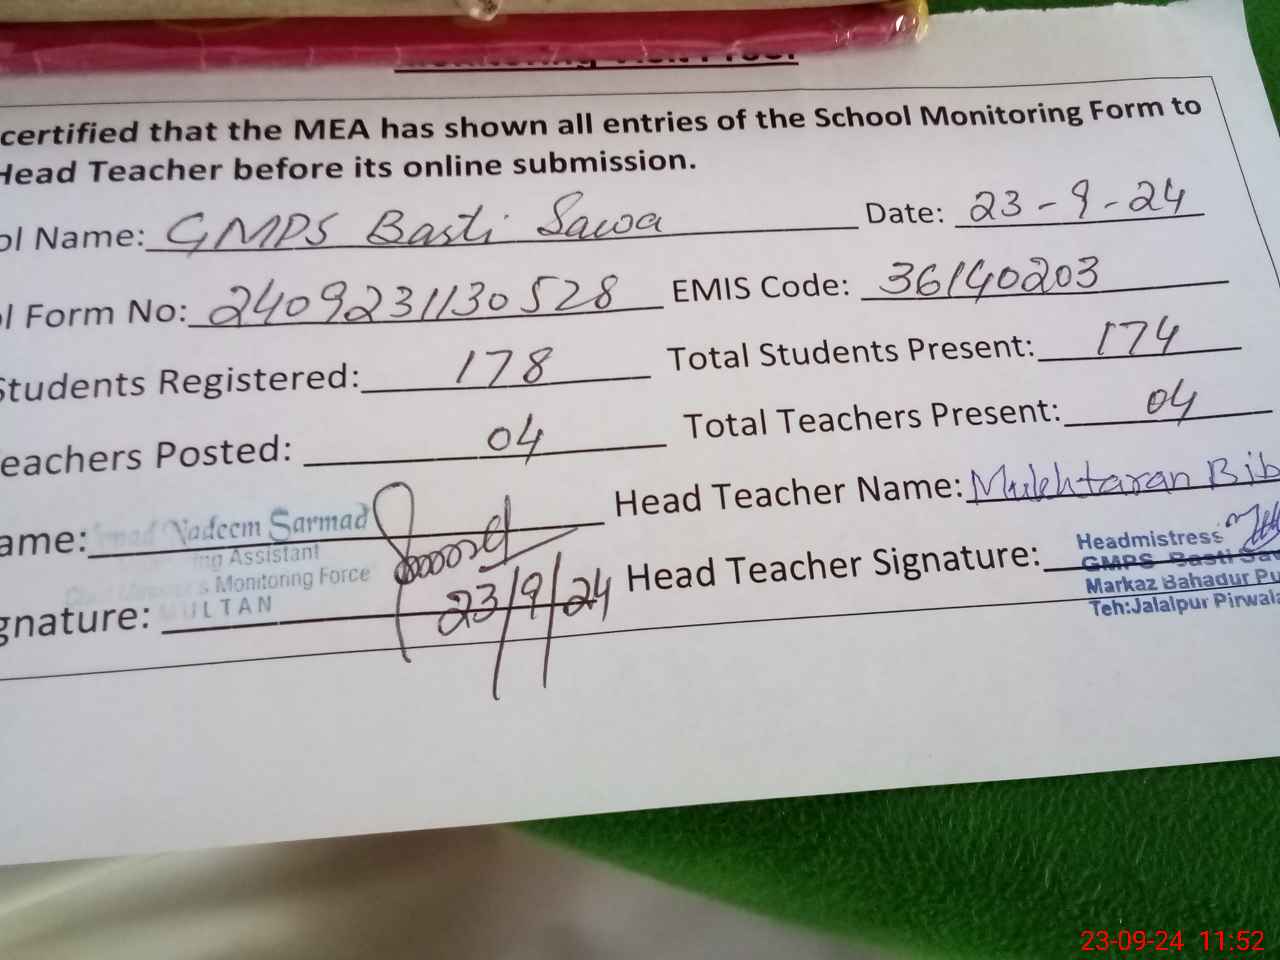 Monitoring Visit Proof
certified that the MEA has shown all entries of the School Monitoring Form to
Head Teacher before its online submission.
ol Name: GMPS Basti Sawa Date: 23-9-24
l Form No:2409231130528 EMIS Code: 36140203
Students Registered: 178 Total Students Present: 174
eachers Posted: 04 Total Teachers Present: 04
ame: Nadeem Sarmad Head Teacher Name: Mukhtaran Bib
ng Assistant
Monitoring Force
ULTAN
gnature: 23/9/24 Head Teacher Signature:
Headmistress
GMPS Basti Saw
Markaz Bahadur Pu
Teh:Jalalpur Pirwala
23-09-24 11:52